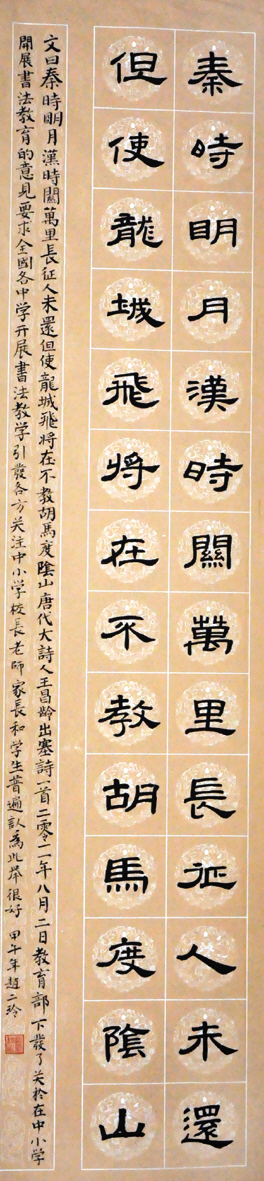 秦時明月漢時關萬里長征人未還
但使龍城飛將在不教胡馬度陰山
文曰秦時明月漢時關萬里長征人未還但使龍城飛將在不教胡馬度陰山唐代大詩人王昌齡出塞詩一首二零一一年八月二日教育部下發了关於在中小学
開展書法教育的意見要求全國各中学开展書法教学引發各方关注中小学校長老師家長和学生普遍认為此举很好甲午年趙二玲